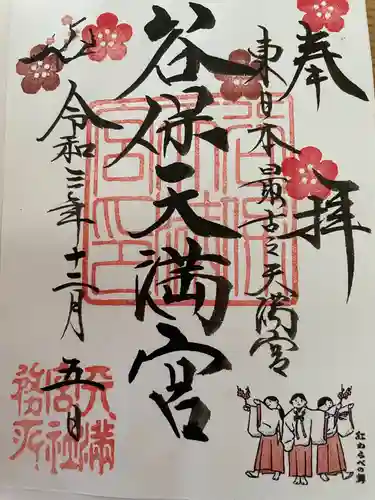 奉拝
東日本最古之天満宮
谷保天満宮
令和三年十二月
五日
紅わらべの舞
天満
宮社
務所